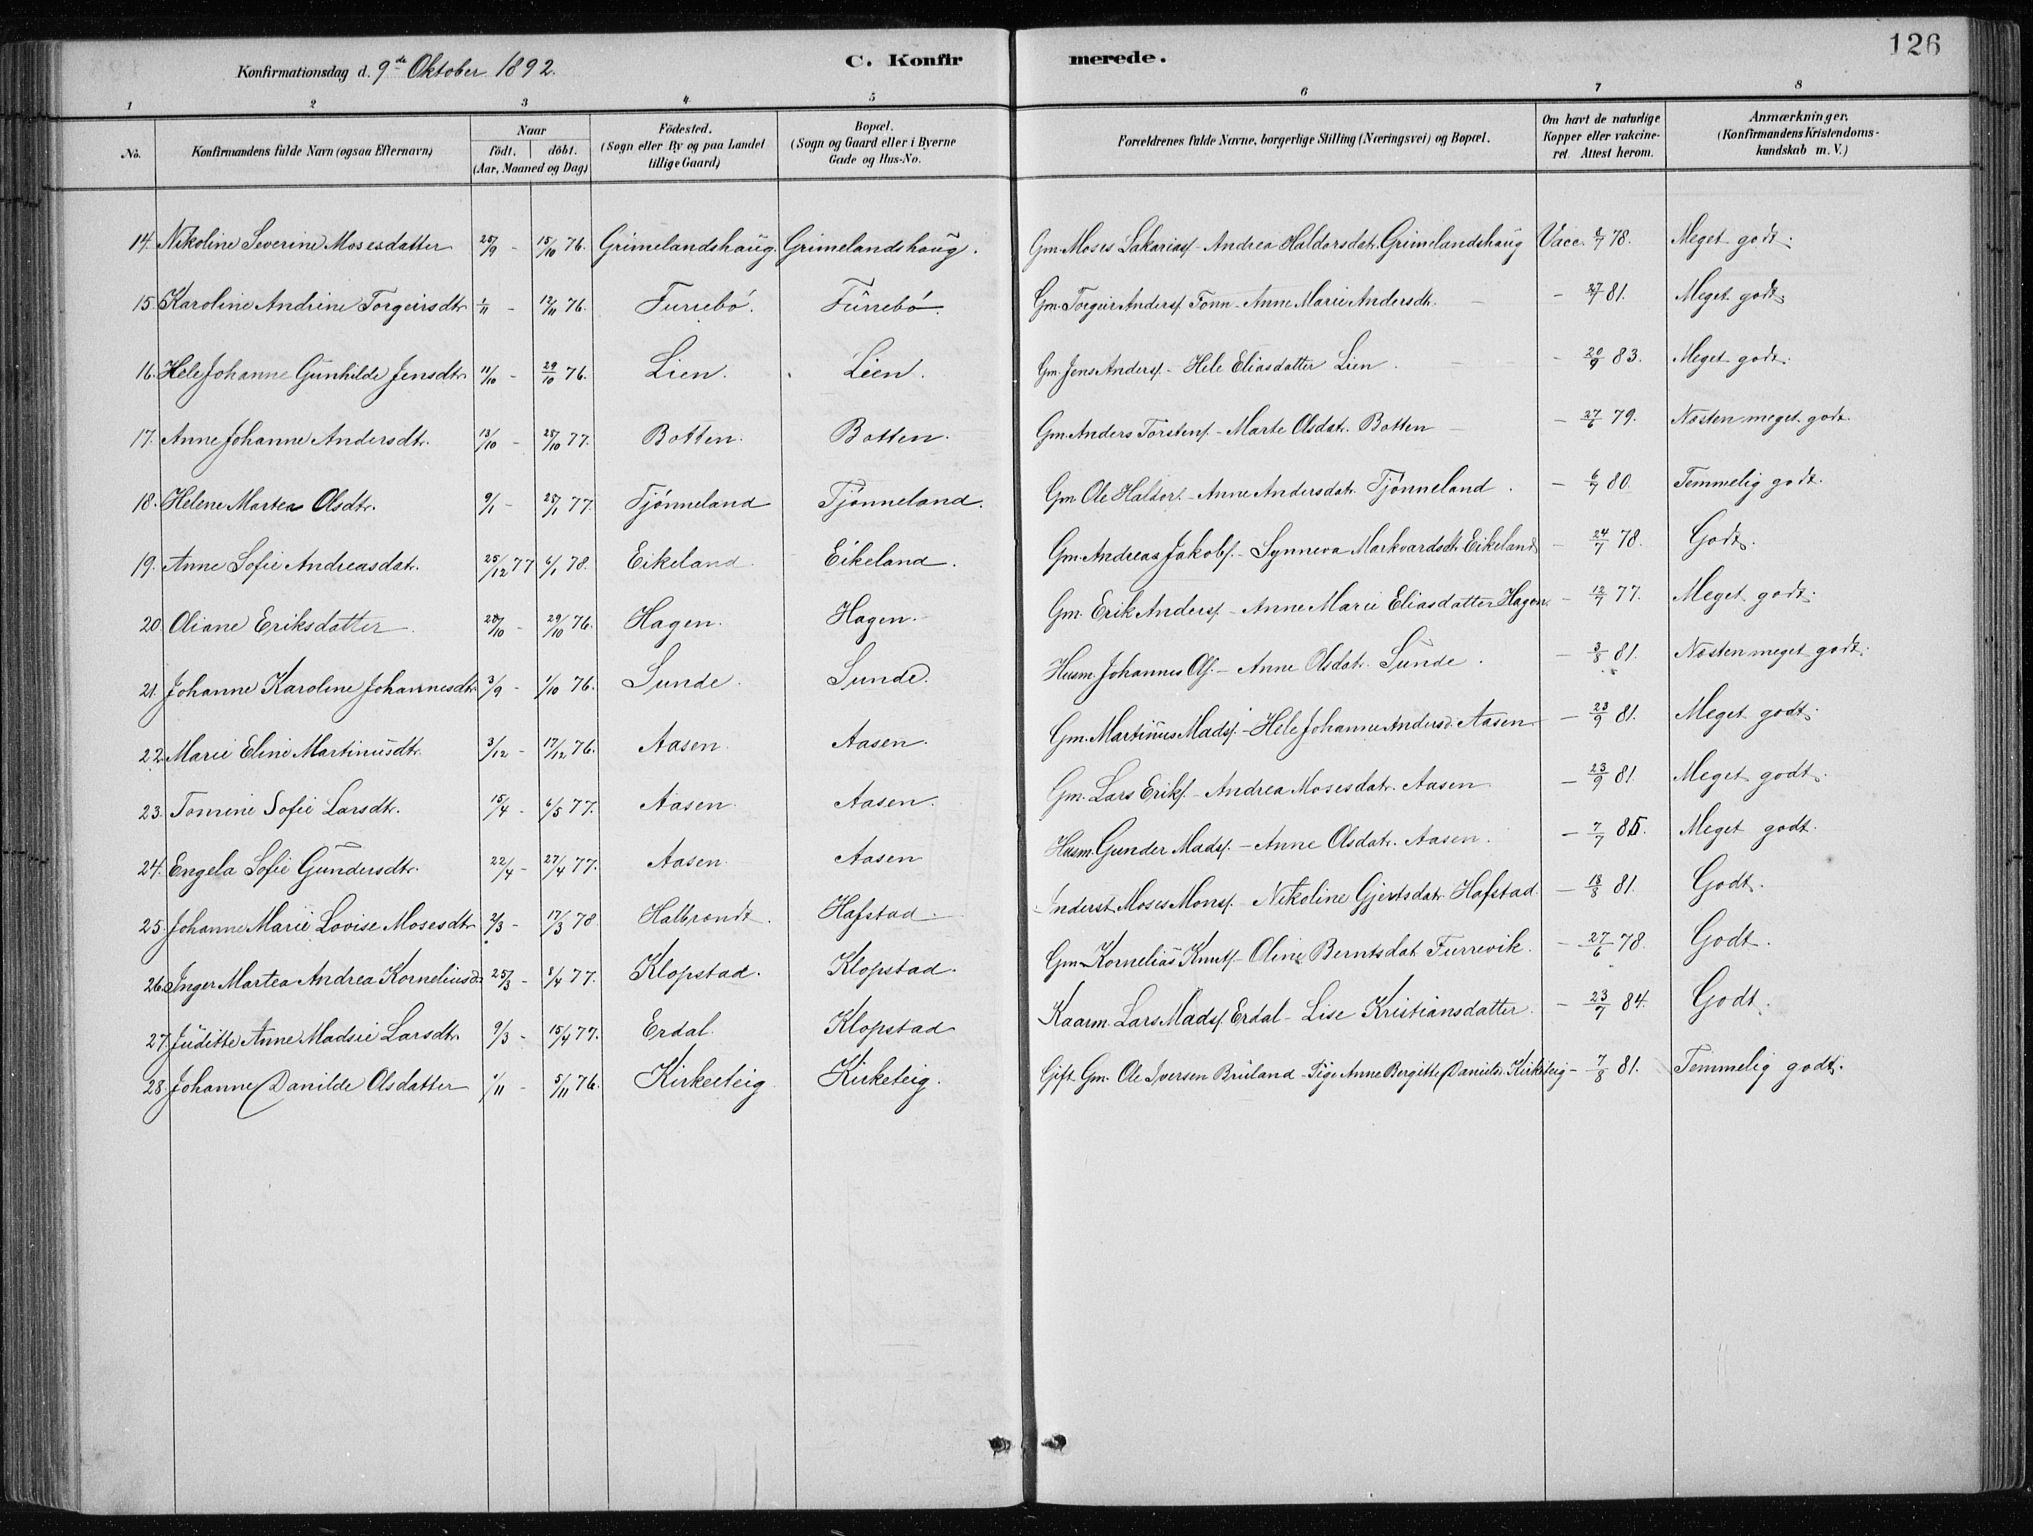 126
Konfirmationsdag d. 9de Oktober 1892. C. Konfirmerede.
1 2 3 4 5 6 7 8
No. Konfirmandens fulde Navn (ogsaa Efternavn) Naar födt. döbt. (Aar, Maaned og Dag) Födested. (Sogn eller By og paa Landet tillige Gaard) Bopæl. (Sogn og Gaard eller i Byerne Gade og Hus-No. Forældrenes fulde Navne, borgerlige Stilling (Næringsvei) og Bopæl. Om havt de naturlige Kopper eller vakcineret. Attest herom. Anmærkninger. (Konfirmandens Kristendomskundskab m. V.)
14. Nikoline Severine Mosesdatter 25/9 - 15/10 76. Grimelandshaug. Grimelandshaug. Gm. Moses Sakarias. - Andrea Haldorsdat. Grimelandshaug Vacc. 8/7 78. Meget godt.
15. Karoline Andrine Torgeirsdtr 1/11 - 12/11 76. Furrebö. Furrebö. Gm. Torgeir Anders. Tonn - Anne Marie Andersdtr. - - 27/7 81. Meget godt
16. Hele Johanne Gunhilde Jensdtr 11/10 - 29/10 76. Lien. Lien. Gm. Jens Anders. - Hele Eliasdatter Lien. - - 20/9 83. Meget godt.
17. Anne Johanne Andersdtr. 13/10 - 28/10 77. Botten. Botten. Gm. Anders Torstens. - Marte Olsdat. Botten - - 27/6 79. Nästen meget godt.
18. Helene Martea Olsdtr. 9/1 - 28/1 77. Tjönneland Tjönneland. Gm. Ole Haldor. - Anne Andersdat. Tjönneland. - 6/7 80. Temmelig godt.
19. Anne Sofie Andreasdat. 25/12 77 6/1 78. Eikeland Eikeland. Gm. Andreas Jakobs. - Synneva Markvardsdtr. Eikeland - 24/7 78. Godt.
20. Oliane Eriksdatter 28/10 - 29/10 76. Hagen. Hagen. Gm. Erik Anders. - Anne Marie Eliasdatter Hagen. - 12/7 77. Meget godt.
21. Johanne Karoline Johannesdtr. 3/9 - 1/10 76. Sunde. Sunde. Husm. Johannes Ols. - Anne Olsdat. Sunde. - 3/8 81. Nästen meget godt.
22. Marie Eline Martinusdtr. 3/12 - 17/12 76. Aasen. Aasen. Gm. Martinus Mads. - Hele Johanne Andersd. Aasen - 23/9 81. Meget godt.
23. Tomine Sofie Larsdtr. 15/4 - 6/5 77. Aasen. Aasen. Gm. Lars Eriks. - Andrea Mosesdat. Aasen - 23/9 81. Meget godt.
24. Engela Sofie Gundersdtr. 22/4 - 27/4 77. Aasen. Aasen Husm. Gunder Mads. - Anne Olsdat. Aasen. - 7/7 85. Meget godt.
25. Johanne Marie Lovise Mosesdtr 2/3 - 17/3 78 Halbrendt. Hafstad. Inderst Moses Mons. - Nikoline Gjertsdat. Hafstad. - 18/8 81. Godt.
26. Inger Martea Andrea Korneliusd. 25/3 - 8/4 77. Klopstad. Klopstad. Gm. Kornelius Knuts. - Oline Berntsdat. Furrevik. - 27/6 78. Godt.
27. Juditte Anne Madsie Larsdtr. 9/3 - 15/4 77. Erdal. Klopstad Kaarm. Lars Mads. Erdal - Lise Kristiansdatter. - 23/7 84. Godt.
28. Johanne Danilde Olsdatter 1/11 - 5/11 76. Kirketeig Kirketeig. Gift Gm. Ole Iversen Bruland - Pige Anne Bergitte Danielsd. Kirketeig - 7/8 81. Temmelig godt.